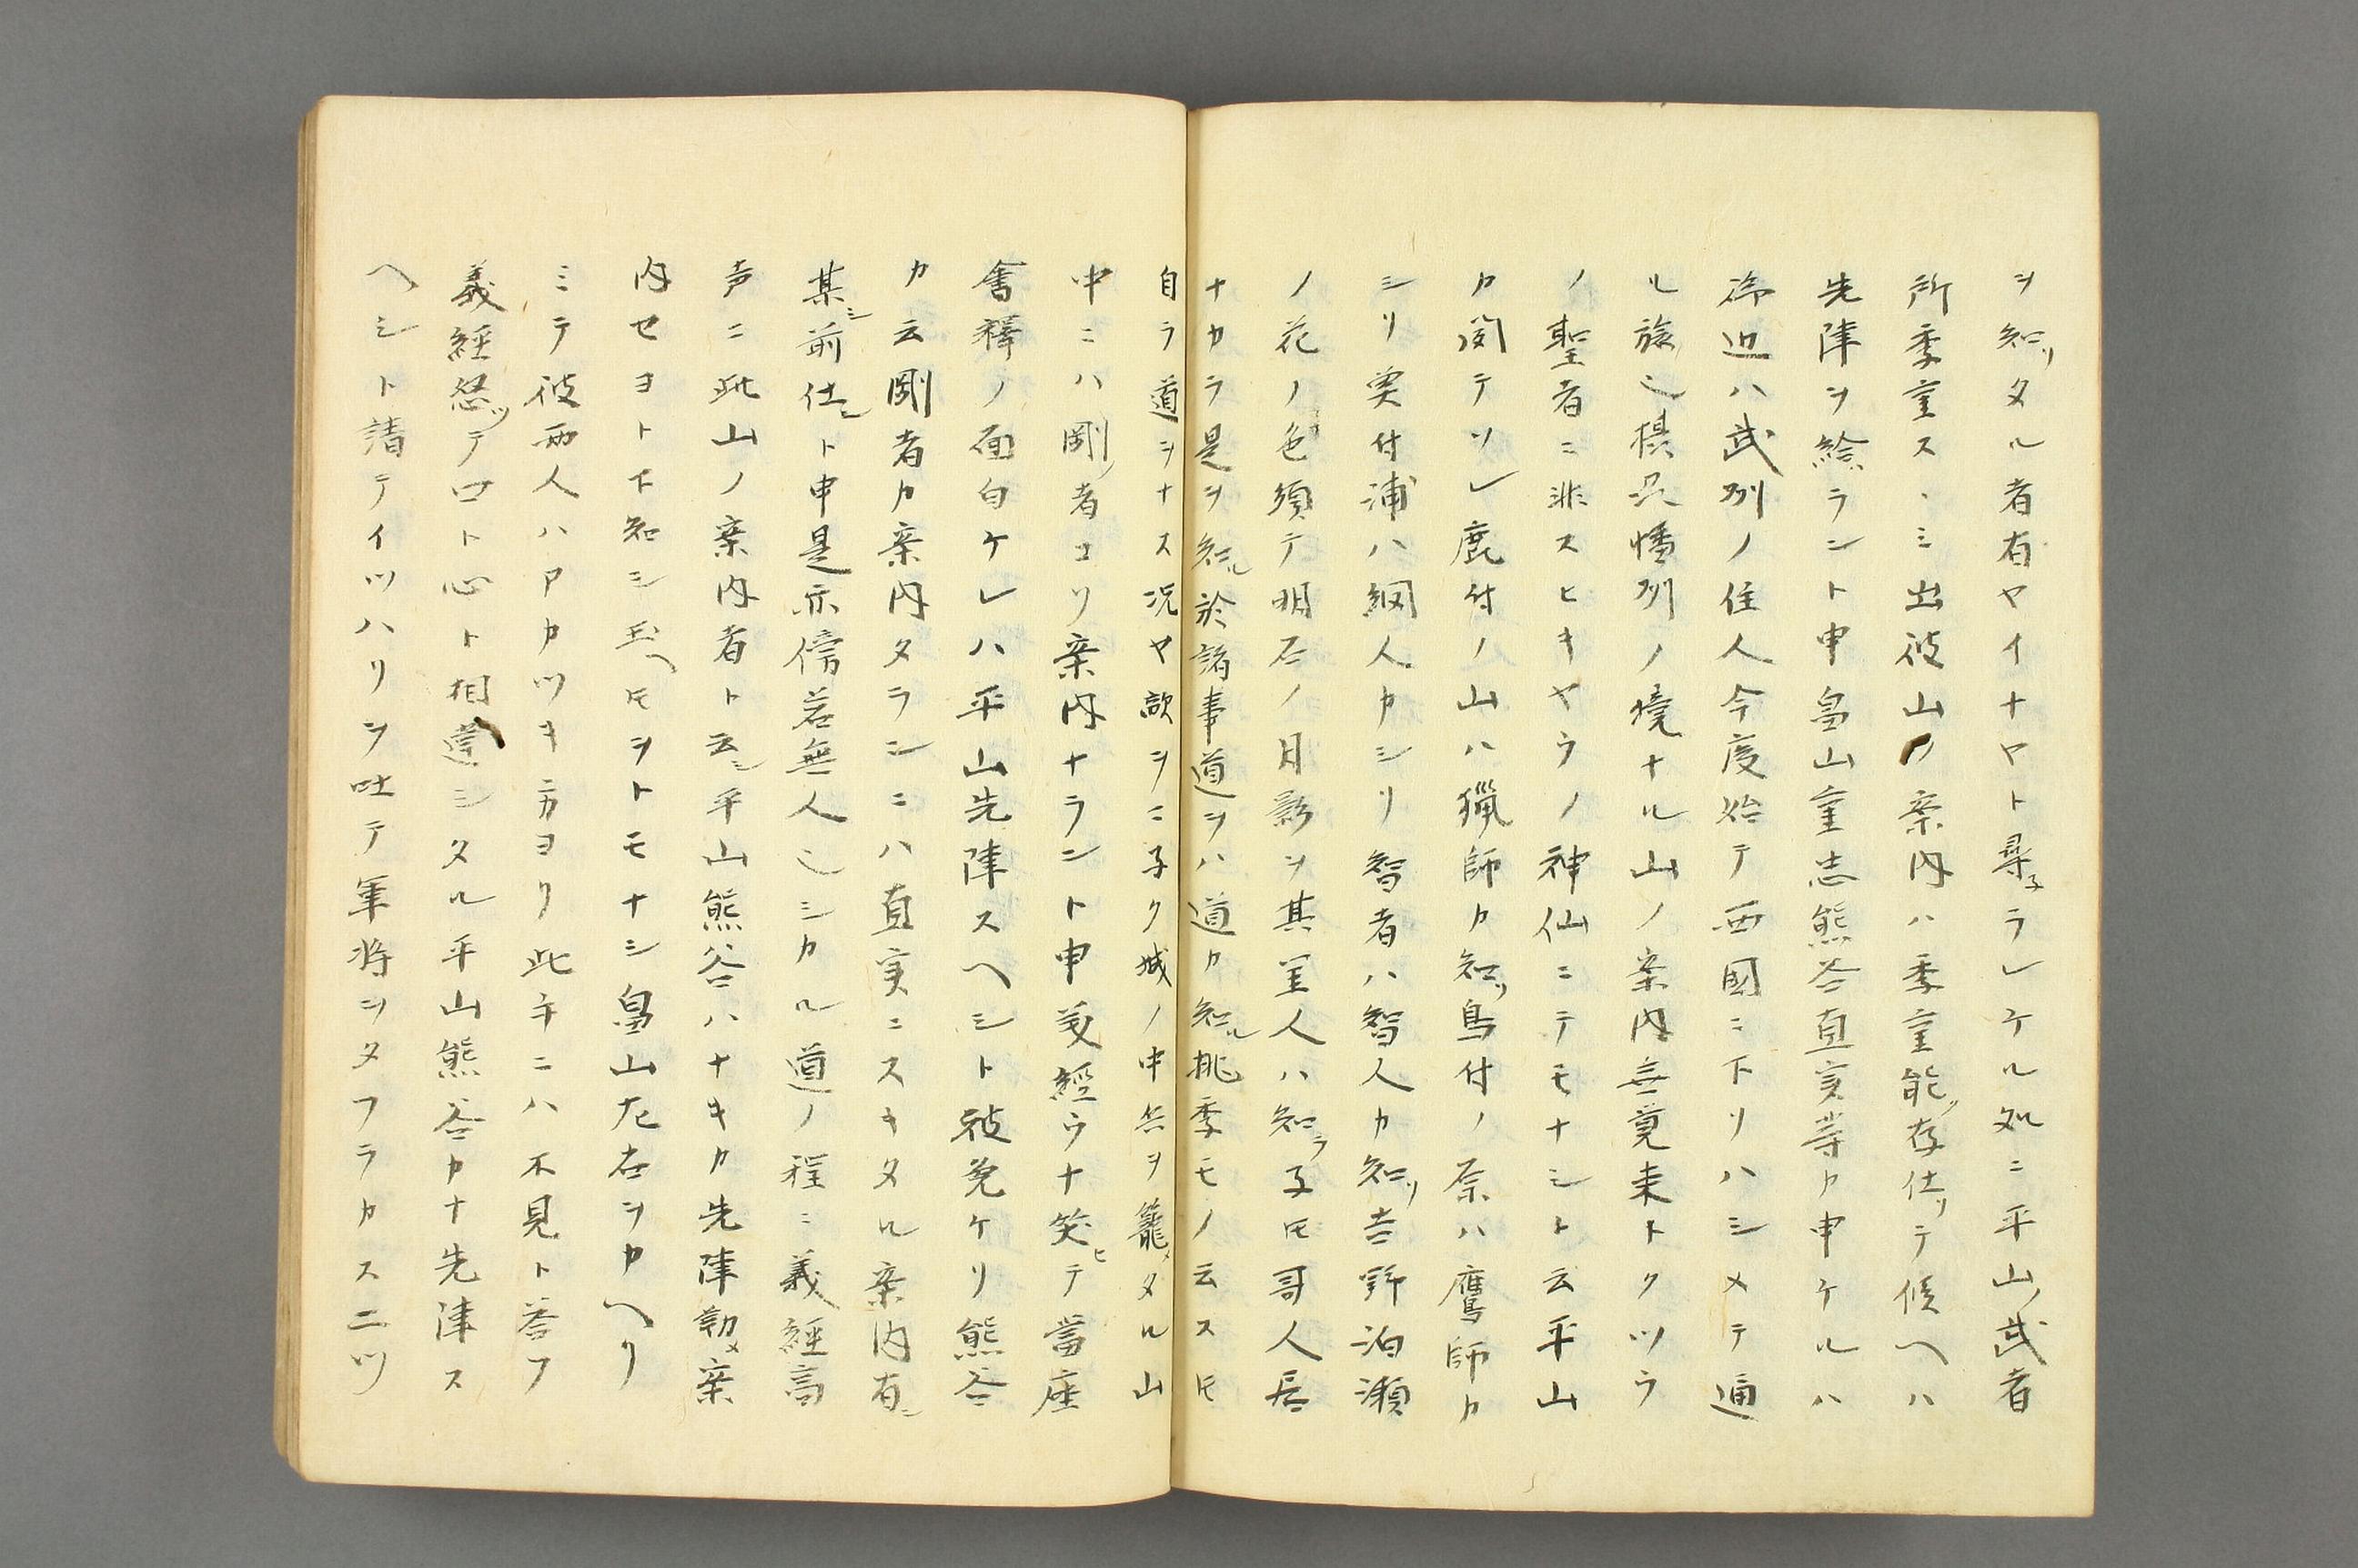 ヲ知リタル者有ヤイナヤト尋子ラレケル処ニ平山武者
所季重スヽミ出彼山ノ案内ハ季重能ク存仕リテ候ヘハ
先陣ヲ給ラント申畠山重忠熊谷直実等カ申ケルハ
御辺ハ武列ノ住人今度始テ西國ニ下リハシメテ通
ル旅也摂况幡列ノ境ナル山ノ案内無覚束トクツラ
ノ聖者ニ非スヒキヤウノ神仙ニテモナシト云平山
カ聞テソレ鹿付ノ山ハ猟師カ知リ鳥付ノ原ハ鷹師カ
シリ奥付浦ハ網人カシリ智者ハ智人カ知リ吉野泊瀬
ノ花ノ色須テ明石ノ月影ヲ其里人ハ知ラ子圧哥人居
ナカラ是ヲ知ル於諸事道ヲハ道カ知ル桃季モノ云ス圧
自ラ道ヲナス况ヤ敵ヲニ子ク城ノ中兵ヲ籠メタル山
中ニハ剛ノ者コソ案内ナラント申義經ウナ笑ヒテ當座
會釋ノ面白ケレハ平山先陣スヘシト被免ケリ熊谷
カ云剛者カ案内タラシニハ直実ニスキタル案内有シ
某シ前仕ント申是亦傍若無人也シカル道ノ程ニ義經高
声ニ此山ノ案内者ト云シ平山熊谷ハナキカ先陣勤メ案
内セヨト下知シ玉ヘ圧ヲトモナシ畠山左右ヲカヘリ
ミテ彼両人ハアカツキ方ヨリ此手ニハ不見ト答フ
義經怒ツテ口ト心ト相違シタル平山熊谷カナ先陣ス
ヘシト請テイツハリヲ吐テ軍将ヲタフラカス二ツ